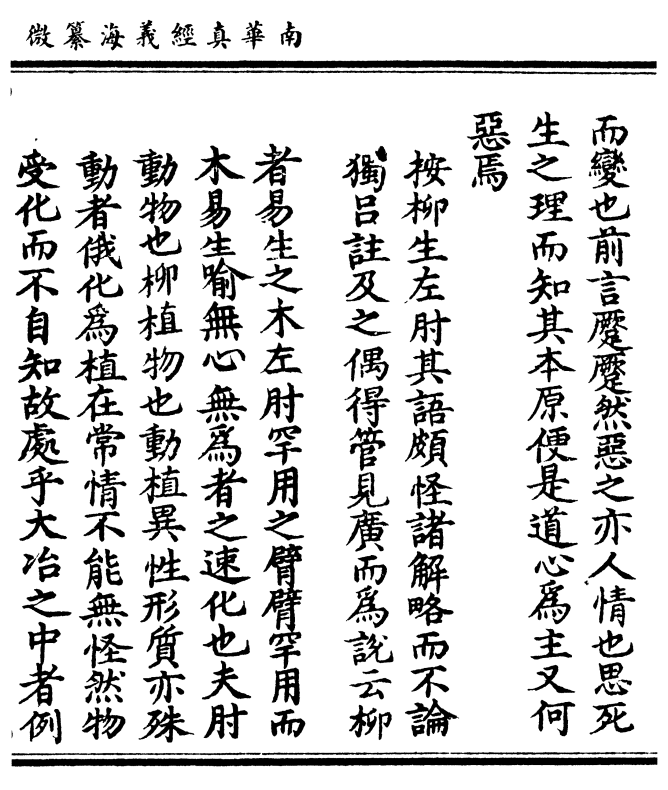 南華真經義海纂微
而變也前言蹙蹙然惡之亦人情也思死
生之理而知其本原便是道心爲主又何
惡焉
按柳生左肘其語頗怪諸解略而不論
獨吕註及之偶得管見廣而爲說云柳
者易生之木左肘罕用之臂臂罕用而
木易生喻無心無爲者之速化也夫肘
動物也柳植物也動植異性形質亦殊
動者俄化爲植在常情不能無怪然物
受化而不自知故處乎大冶之中者例